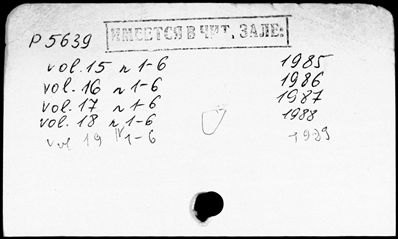 P 5639 ИМЕЕТСЯ В ЧИТ. ЗАЛЕ:
vol. 15 n 1-6 1985
vol. 16 n 1-6 1986
vol. 17 n 1-6 1987
vol. 18 n 1-6 1988
vol 19 N 1-6 1989